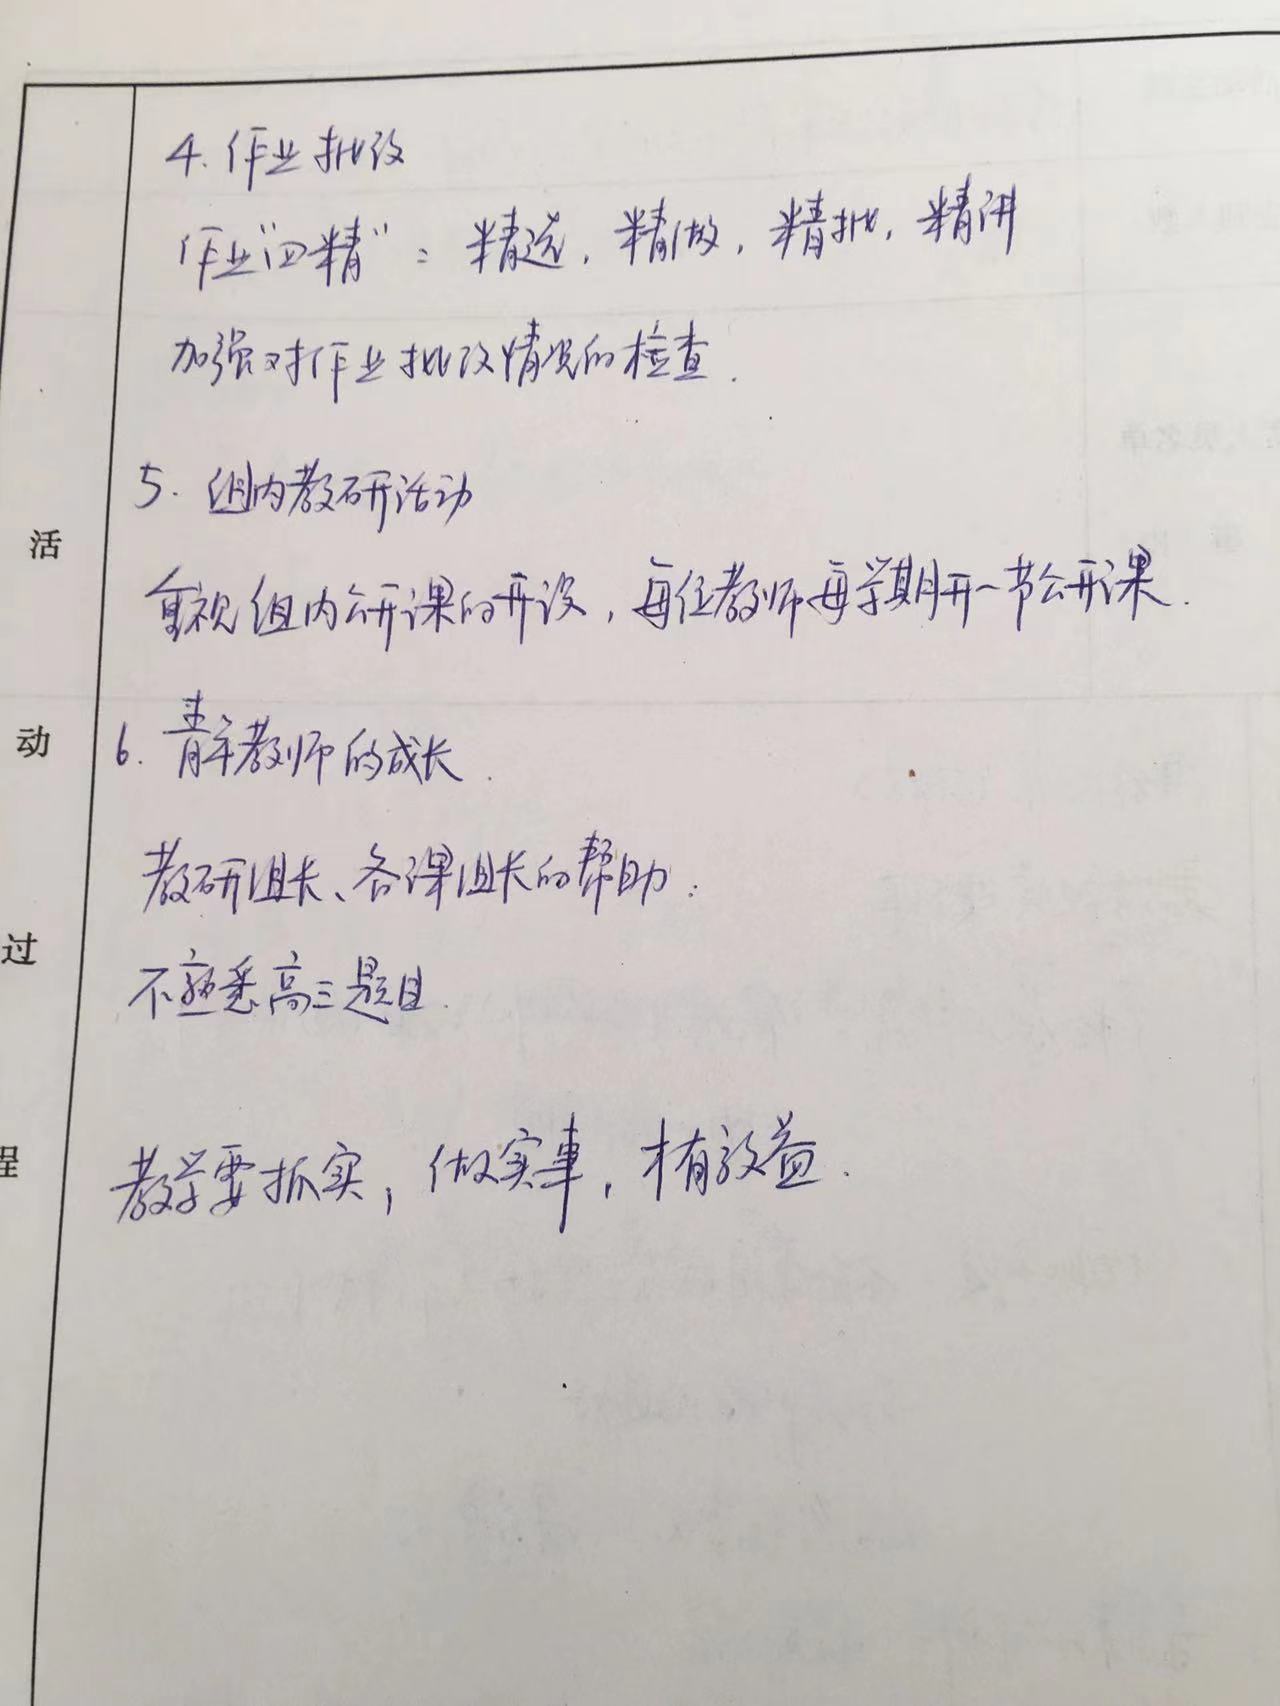 4. 作业批改
作业“四精”：精选，精做，精批，精讲
加强对作业批改情况的检查.
5. 组内教研活动
重视组内公开课的开设，每位教师每学期开一节公开课.
6. 青年教师的成长.
教研组长、备课组长的帮助.
不熟悉高三题目.
教学要抓实，做实事，才有效益.
活
动
过
程